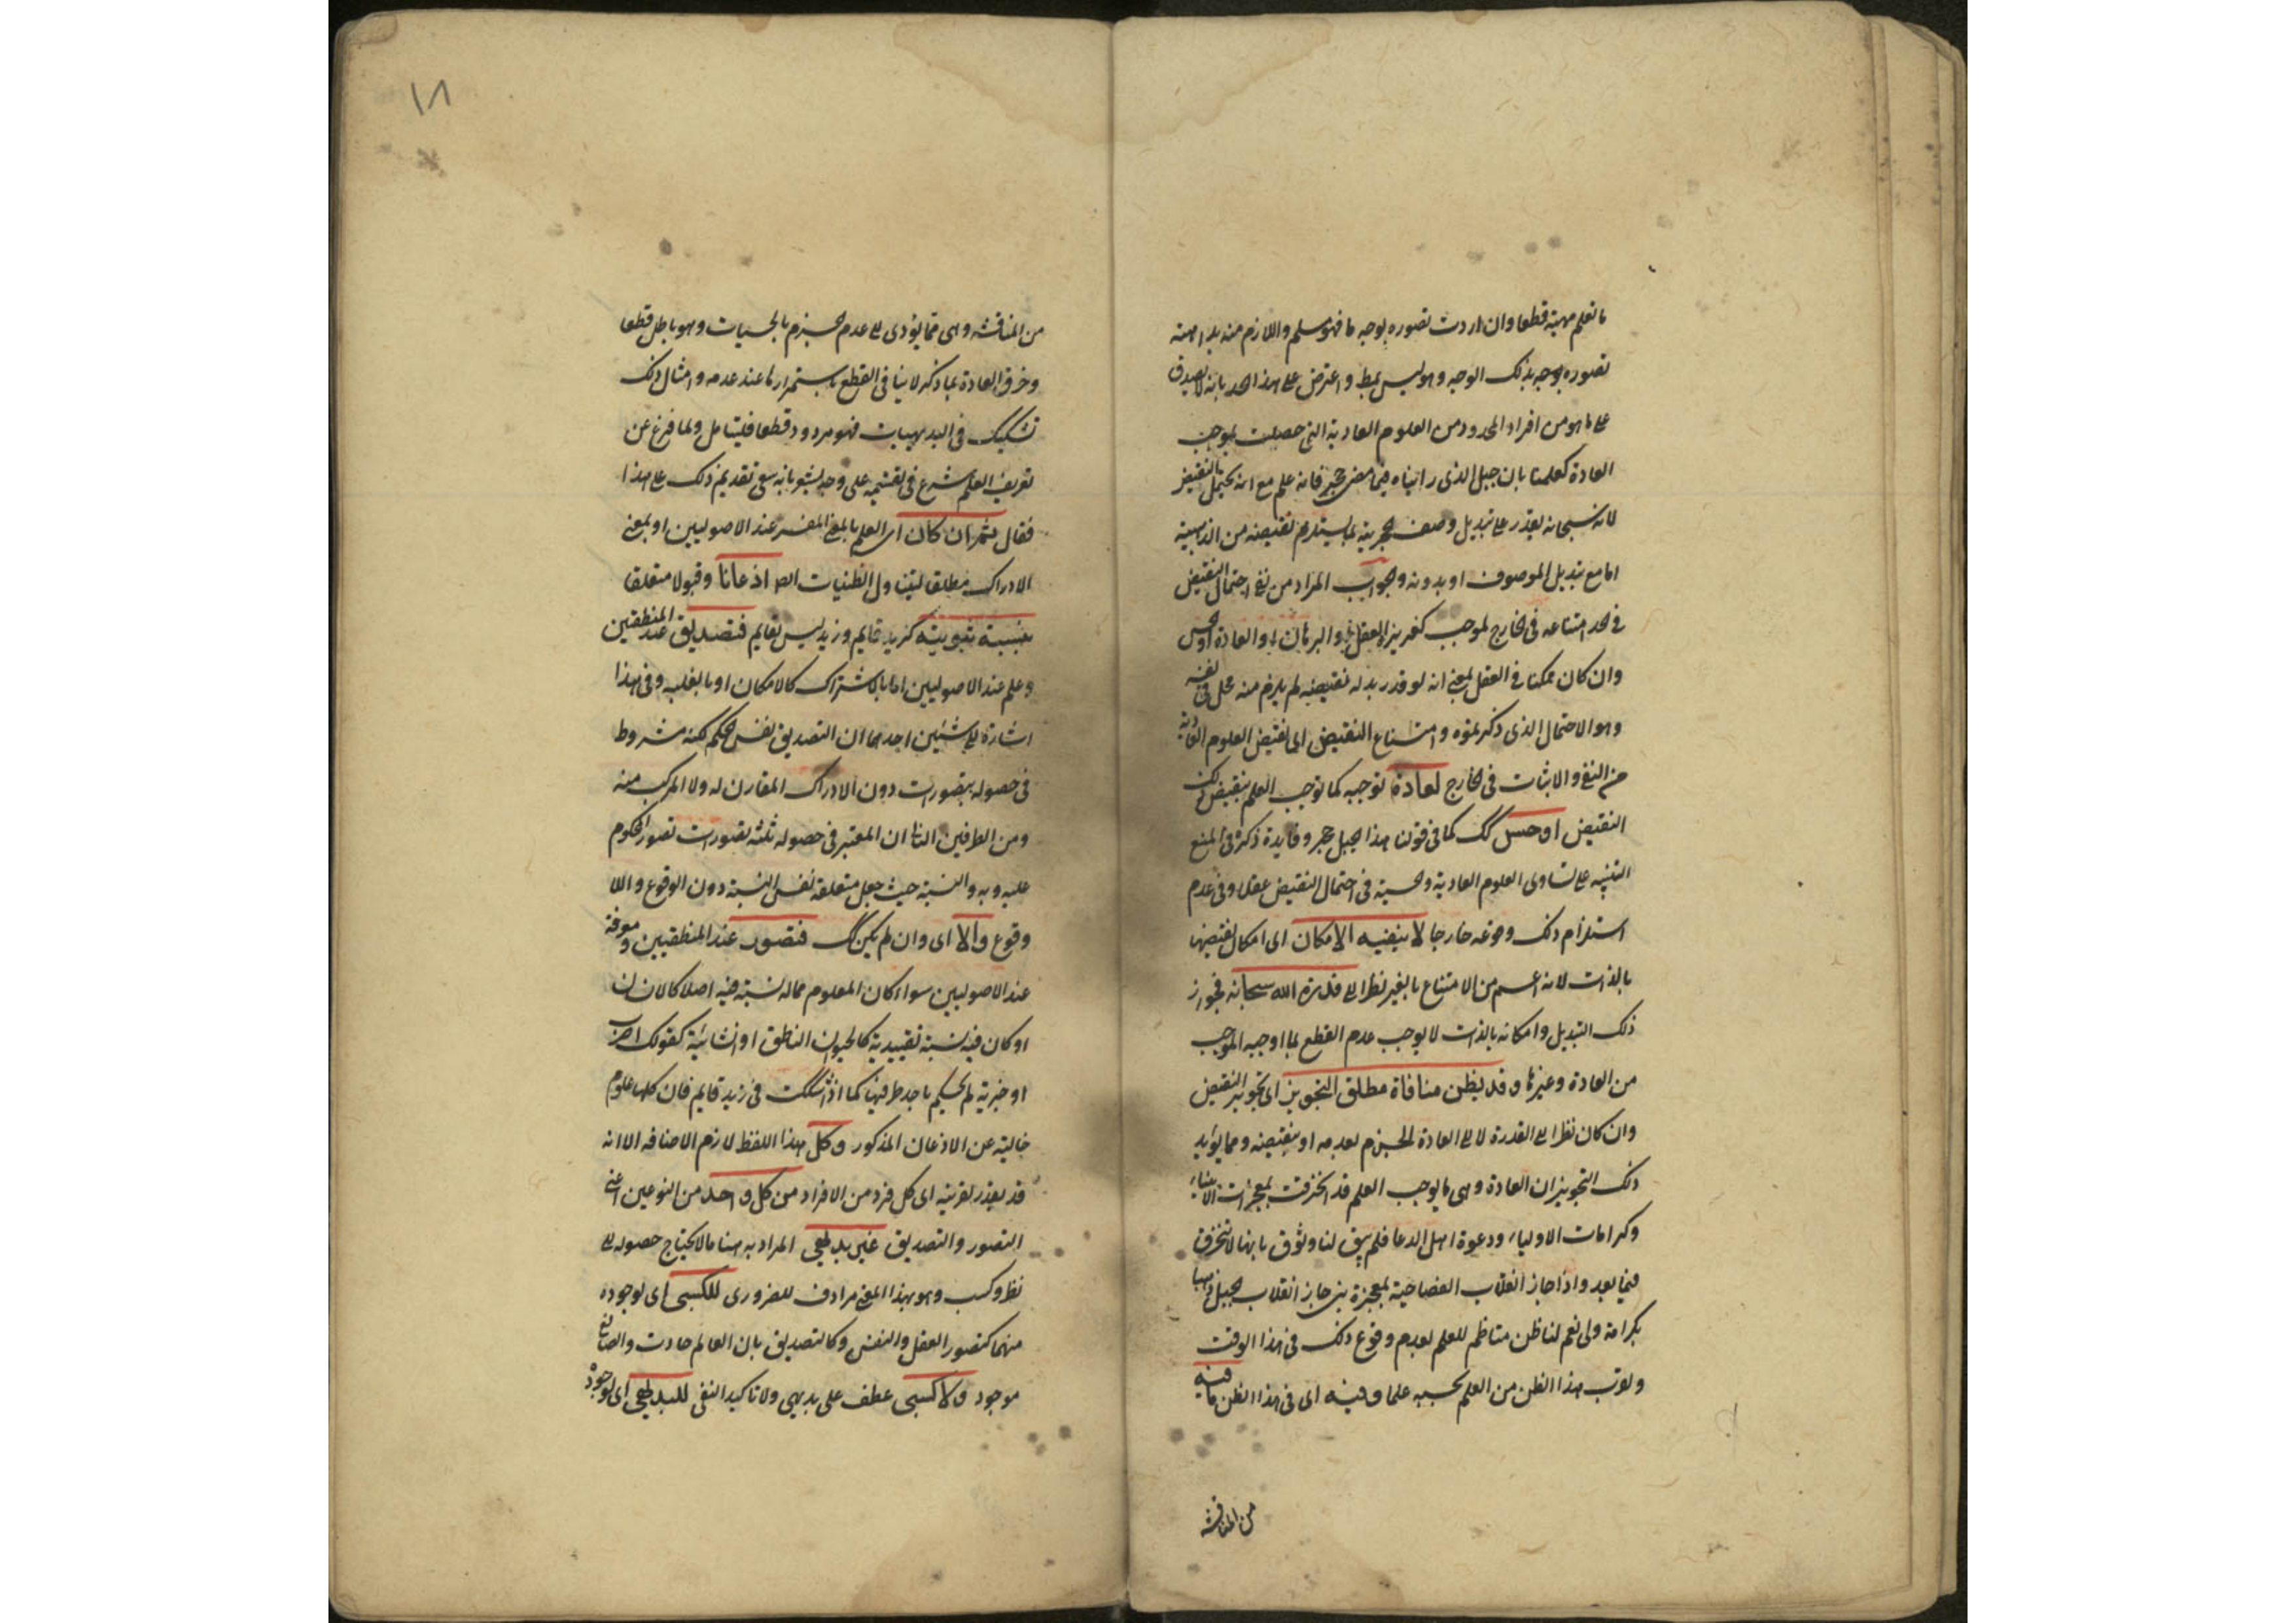 ما تعلم مهيته قطعا وان اردت تصوره بوجه ما فهو مسلم واللازم منه بداهته
تصوره بوجه بذلك الوجه وهو ليس بمط واعترض على هذا الحد بانه لا يصدق
على ما هو من افراد المحدود من العلوم العادية التي حصلت بموجب
العادة كعلمنا بان جبل الذي رايناه فيما مضى حجر فانه علم مع انه يحتمل النقيض
لانه سبحانه يقدر على تبديل وصف الحجرية بما يستلزم نقيضه من الذهبية
اما مع تبديل الموصوف او بدونه والجواب المراد من نفي احتمال النقيض
في الحد امتناعه في الخارج لموجب كغريزة العقل والبرهان والعادة او الحس
وان كان ممكنا في العقل بمعنى انه لو قدر بدله نقيضه لم يلزم منه محل في نفسه
وهو الاحتمال الذي ذكرتموه وامتناع النقيض اى نقيض العلوم العادية
من النفي والاثبات في الخارج لعادة توجبه كما توجب العلم بنقيض ذلك
النقيض او حس كك كما في قولنا هذا الجبل حجر وفايدة ذكره في المنع
التنبيه على تساوى العلوم العادية والحسية في احتمال النقيض عقلا وفي عدم
استلزام ذلك وقوعه خارجا لا ينفيه الامكان اى امكان نقيضها
بالذات لانه اعم من الامتناع بالغير نظرا الى قدرة الله سبحانه فجواز
ذلك التبديل وامكانه بالذات لا يوجب عدم القطع بما اوجبه الموجب
من العادة وغيرها وقد يظن منافاة مطلق التجويز اى تجويز النقيض
وان كان نظرا الى القدرة لا الى العادة للجزم بعدمه او بنقيضه ومما يؤيد
ذلك التجويز ان العادة وهى ما يوجب العلم قد انخرقت بمعجزات الانبياء
وكرامات الاولياء ودعوة اهل الدعا فلم يبق لنا وثوق بانها لا تنخرق
فيما بعد واذا جاز انقلاب العصا حية بمعجزة نبي جاز انقلاب الجبل ذهبا
بكرامة ولى نعم لنا ظن متاخم للعلم بعدم وقوع ذلك في هذا الوقت
ولقرب هذا الظن من العلم نحسبه علما وفيه اى في هذا الظن ما فيه
من المناقشه
١٨
من المناقشه وهى مما يؤدى الى عدم الجزم بالحسيات وهو باطل قطعا
وخرق العادة بما ذكر لا ينافى القطع باستمرارها عند عدمه وامثال ذلك
تشكيك في البديهيات فهو مردود قطعا فليتامل ولما فرغ عن
تعريف العلم شرع في تقسيمه على وجه يشعر بانه ينبغى تقديم ذلك على هذا
فقال ثم ان كان اى العلم بالمعنى المفسر عند الاصوليين او بمعنى
الادراك مطلقا ليتناول الظنيات ايضا اذعانا وقبولا متعلقا
بنسبة ثبوتية كزيد قايم وزيد ليس بقايم فتصديق عند المنطقيين
وعلم عند الاصوليين اما بالاشتراك كالامكان او بالغلبه وفي هذا
اشارة الى شيئين احدهما ان التصديق نفس الحكم لكنه مشروط
في حصوله بتصورات دون الادراك المقارن له ولا المركب منه
ومن الطرفين الثانى ان المعتبر في حصوله ثلثة تصورات تصور المحكوم
عليه وبه والنسبة حيث جعل متعلقه نفس النسبة دون الوقوع واللا
وقوع والا اى وان لم يكن كك فتصور عند المنطقيين ومعرفة
عند الاصوليين سواء كان المعلوم مما له نسبة فيه اصلا كالانسان
او كان فيه نسبة تقييدية كالحيوان الناطق او انشائية كقولك اضرب
او خبرية لم تحكم باحد طرفيها كما اذا شككت في زيد قايم فان كلها علوم
خالية عن الاذعان المذكور وكل هذا اللفظ لازم الاضافه الا انه
قد يقدر لقرينة اى كل فرد من الافراد من كل واحد من النوعين اعنى
التصور والتصديق غير بديهى المراد به هنا ما لا يحتاج حصوله الى
نظر وكسب وهو بهذا المعنى مرادف للضرورى للكسبى اى لوجوده
منهما كتصور العقل والنفس وكالتصديق بان العالم حادث والصانع
موجود ولا كسبى عطف على بديهى ولا تاكيد النفى للبديهى اى لوجوده